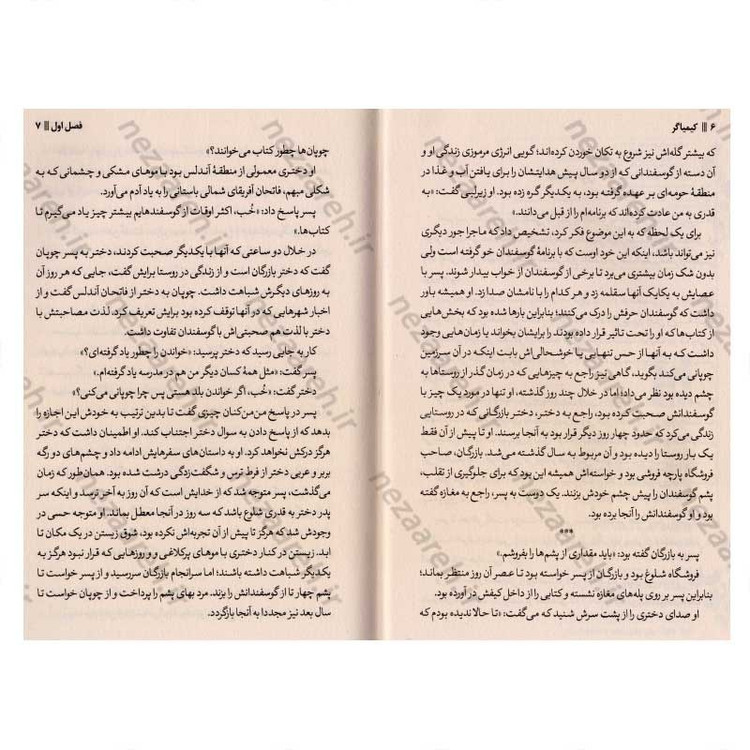 ۶ ||| کیمیاگر
که بیشتر گله‌اش نیز شروع به تکان خوردن کرده‌اند؛ گویی انرژی مرموزی زندگی او و
آن دسته از گوسفندانی که از دو سال پیش هدایتشان را برای یافتن آب و غذا در
منطقهٔ حومه‌ای بر عهده گرفته بود، به یکدیگر گره زده بود. او زیرلبی گفت: «به
قدری به من عادت کرده‌اند که برنامه‌ام را از قبل می‌دانند.»
برای یک لحظه‌ که به این موضوع فکر کرد، تشخیص داد که ماجرا جور دیگری
نیز می‌تواند باشد، اینکه این خود اوست که با برنامهٔ گوسفندان خو گرفته است ولی
بدون شک زمان بیشتری می‌برد تا برخی از گوسفندان از خواب بیدار شوند. پسر با
عصایش به یکایک آنها سقلمه زد و هر کدام را با نامشان صدا زد. او همیشه باور
داشت که گوسفندان حرفش را درک می‌کنند؛ بنابراین بارها شده بود که بخش‌هایی
از کتاب‌ها که او را تحت تاثیر قرار داده بودند را برایشان بخواند یا زمان‌هایی وجود
داشت که به آنها از حس تنهایی یا خوشحالی‌اش بابت اینکه در آن سرزمین
چوپانی می‌کند بگوید، گاهی نیز راجع به چیزهایی که در زمان گذر از روستاها به
چشم دیده بود نظر می‌داد؛ اما در خلال چند روز گذشته، او تنها در مورد یک چیز با
گوسفندانش صحبت کرده بود، راجع به دختر، دختر بازرگانی که در روستایی
زندگی می‌کرد که حدود چهار روز دیگر قرار بود به آنجا برسند. او تا پیش از آن فقط
یک بار روستا را دیده بود و آن مربوط به سال گذشته می‌شد. بازرگان، صاحب
فروشگاه پارچه فروشی بود و خواسته‌اش همیشه این بود که برای جلوگیری از تقلب،
پشم گوسفندان را پیش چشم خودش بزنند. یک دوست به پسر، راجع به مغازه گفته
بود و او گوسفندانش را آنجا برده بود.
***
پسر به بازرگان گفته بود: «باید مقداری از پشم‌ها را بفروشم.»
فروشگاه شلوغ بود و بازرگان از پسر خواسته بود تا عصر آن روز منتظر بماند؛
بنابراین پسر بر روی پله‌های مغازه نشسته و کتابی را از داخل کیفش در آورده بود.
او صدای دختری را از پشت سرش شنید که می‌گفت: «تا حالا ندیده بودم که
فصل اول ||| ۷
چوپان‌ها چطور کتاب می‌خوانند؟»
او دختری معمولی از منطقهٔ آندلس بود با موهای مشکی و چشمانی که به
شکلی مبهم، فاتحان آفریقای شمالی باستانی را به یاد آدم می‌آورد.
پسر پاسخ داد: «خُب، اکثر اوقات از گوسفندهایم بیشتر چیز یاد می‌گیرم تا
کتاب‌ها.»
در خلال دو ساعتی که آنها با یکدیگر صحبت کردند، دختر به پسر چوپان
گفت که دختر بازرگان است و از زندگی در روستا برایش گفت، جایی که هر روز آن
به روزهای دیگرش شباهت داشت. چوپان به دختر از فاتحان آندلس گفت و از
اخبار شهرهایی که در آنها توقف کرده بود برایش تعریف کرد. لذت مصاحبتش با
دختر با لذت هم صحبتی‌اش با گوسفندان تفاوت داشت.
کار به جایی رسید که دختر پرسید: «خواندن را چطور یاد گرفته‌ای؟»
پسر گفت: «مثل همهٔ کسان دیگر من هم در مدرسه یاد گرفته‌ام.»
دختر گفت: «خُب، اگر خواندن بلد هستی پس چرا چوپانی می‌کنی؟»
پسر در پاسخ من‌من‌کنان چیزی گفت تا بدین ترتیب به خودش این اجازه را
بدهد که از پاسخ دادن به سوال دختر اجتناب کند. او اطمینان داشت که دختر
هرگز درکش نخواهد کرد. او به داستان‌های سفرهایش ادامه داد و چشم‌های دو رگه
بربر و عربی دختر از فرط ترس و شگفت‌زدگی درشت شده بود. همان‌طور که زمان
می‌گذشت، پسر متوجه شد که از خدایش است که آن روز به آخر نرسد و اینکه سر
پدر دختر به قدری شلوغ باشد که سه روز در آنجا معطل بماند. او متوجه حسی در
وجودش شد که هرگز تا پیش از آن تجربه‌اش نکرده بود، شوق زیستن در یک مکان تا
ابد. زیستن در کنار دختری با موهای پرکلاغی و روزهایی که قرار نبود هرگز به
یکدیگر شباهت داشته باشند؛ اما سرانجام بازرگان سررسید و از پسر خواست تا
پشم چهار تا از گوسفندانش را بزند. مرد بهای پشم را پرداخت و از چوپان خواست تا
سال بعد نیز مجددا به آنجا بازگردد.
nezaareh.ir
nezaareh.ir
nezaareh.ir
nezaareh.ir
nezaareh.ir
nezaareh.ir